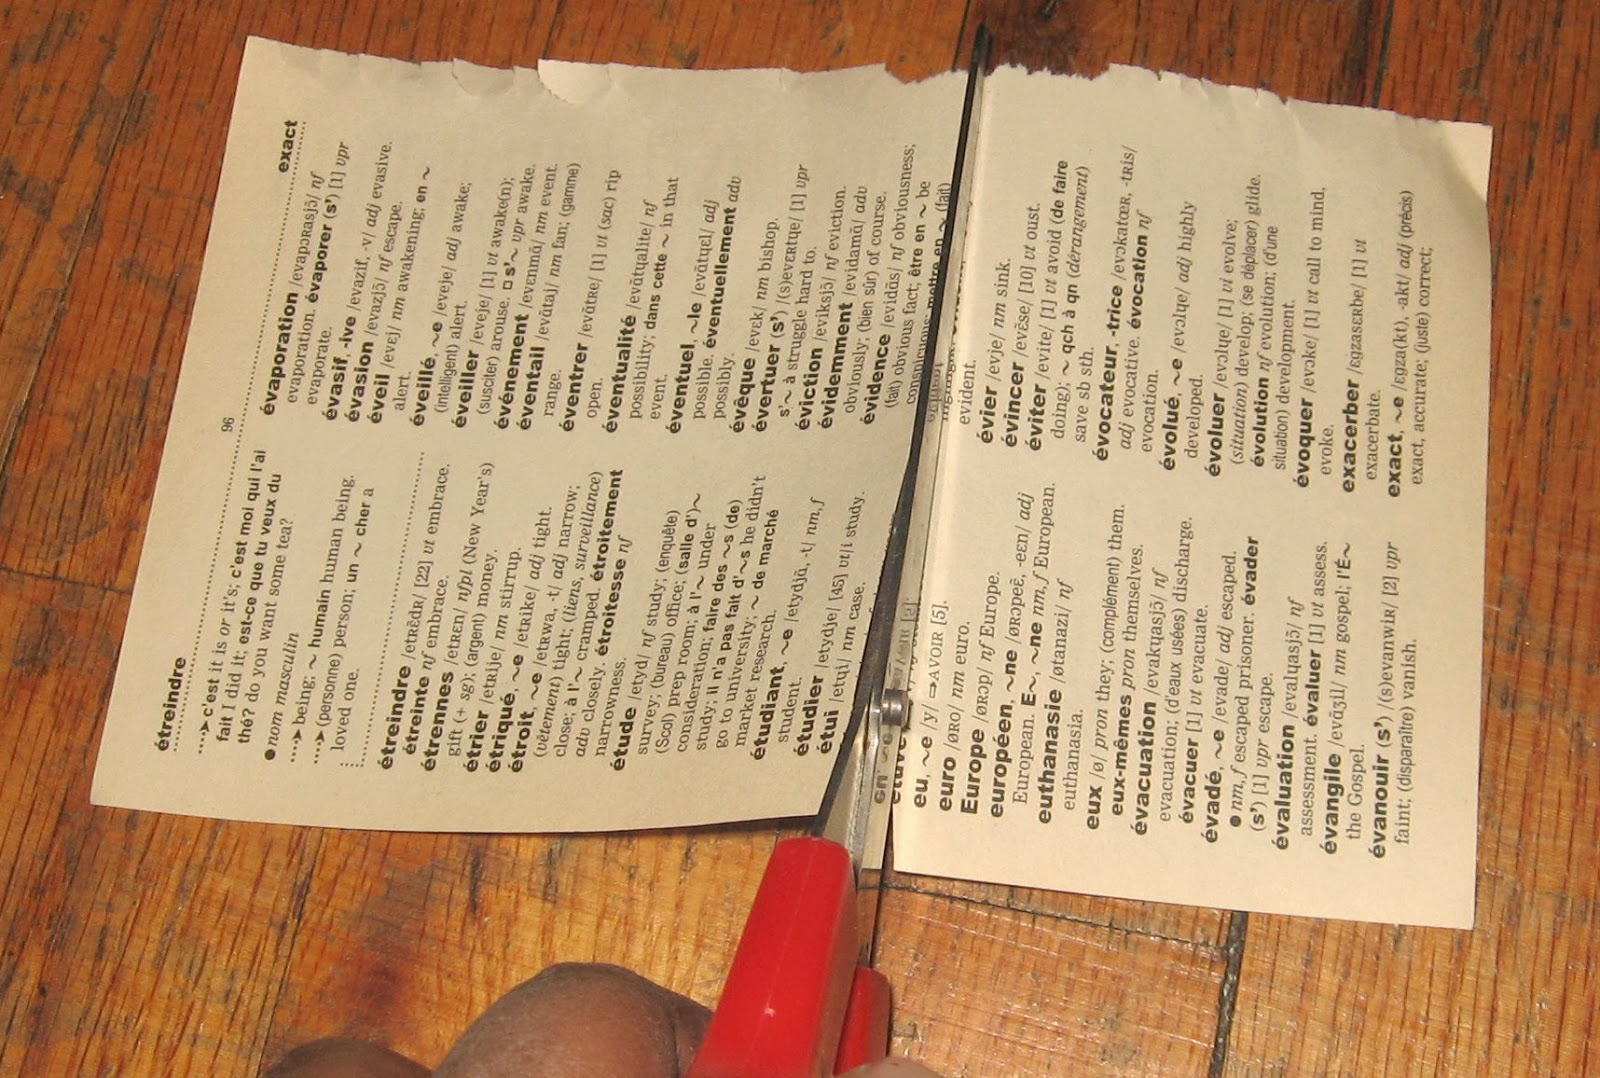 étreindre
96
exact
c'est it is or it's; c'est moi qui l'ai
fait I did it; est-ce que tu veux du
thé? do you want some tea?
● nom masculin
being; ~ humain human being.
(personne) person; un ~ cher a
loved one.
étreindre /etʀɛ̃dʀ/ [22] vt embrace.
étreinte nf embrace.
étrennes /etʀɛn/ nfpl (New Year's)
gift (+ sg); (argent) money.
étrier /etʀije/ nm stirrup.
étriqué, ~e /etʀike/ adj tight.
étroit, ~e /etʀwa, -t/ adj narrow;
(vêtement) tight; (liens, surveillance)
close; à l'~ cramped. étroitement
adv closely. étroitesse nf
narrowness.
étude /etyd/ nf study; (enquête)
survey; (bureau) office; (salle d')~
(Scol) prep room; à l'~ under
consideration; faire des ~s (de)
study; il n'a pas fait d'~s he didn't
go to university; ~ de marché
market research.
étudiant, ~e /etydjɑ̃, -t/ nm,f
student.
étudier /etydje/ [45] vt/i study.
étui /etɥi/ nm case.
eu, ~e /y/ ⇒AVOIR [5].
euro /øʀo/ nm euro.
Europe /øʀɔp/ nf Europe.
européen, ~ne /øʀɔpeɛ̃, -eɛn/ adj
European. E~, ~ne nm,f European.
euthanasie /øtanazi/ nf
euthanasia.
eux /ø/ pron they; (complément) them.
eux-mêmes pron themselves.
évacuation /evakɥasjɔ̃/ nf
evacuation; (d'eaux usées) discharge.
évacuer [1] vt evacuate.
évadé, ~e /evade/ adj escaped.
● nm,f escaped prisoner. évader
(s') [1] vpr escape.
évaluation /evalɥasjɔ̃/ nf
assessment. évaluer [1] vt assess.
évangile /evɑ̃ʒil/ nm gospel; l'É~
the Gospel.
évanouir (s') /(s)evanwiʀ/ [2] vpr
faint; (disparaître) vanish.
évaporation /evapɔʀasjɔ̃/ nf
evaporation. évaporer (s') [1] vpr
evaporate.
évasif, -ive /evazif, -v/ adj evasive.
évasion /evazjɔ̃/ nf escape.
éveil /evɛj/ nm awakening; en ~
alert.
éveillé, ~e /eveje/ adj awake;
(intelligent) alert.
éveiller /eveje/ [1] vt awake(n);
(susciter) arouse. □ s'~ vpr awake.
événement /evɛnmɑ̃/ nm event.
éventail /evɑ̃taj/ nm fan; (gamme)
range.
éventrer /evɑ̃tʀe/ [1] vt (sac) rip
open.
éventualité /evɑ̃tɥalite/ nf
possibility; dans cette ~ in that
event.
éventuel, ~le /evɑ̃tɥɛl/ adj
possible. éventuellement adv
possibly.
évêque /evɛk/ nm bishop.
évertuer (s') /(s)evɛʀtɥe/ [1] vpr
s'~ à struggle hard to.
éviction /eviksjɔ̃/ nf eviction.
évidemment /evidamɑ̃/ adv
obviously; (bien sûr) of course.
évidence /evidɑ̃s/ nf obviousness;
(fait) obvious fact; être en ~ be
conspicuous; mettre en ~ (fait)
evident.
évier /evje/ nm sink.
évincer /evɛ̃se/ [10] vt oust.
éviter /evite/ [1] vt avoid (de faire
doing); ~ qch à qn (dérangement)
save sb sth.
évocateur, -trice /evɔkatœʀ, -tʀis/
adj evocative. évocation nf
evocation.
évolué, ~e /evɔlɥe/ adj highly
developed.
évoluer /evɔlɥe/ [1] vi evolve;
(situation) develop; (se déplacer) glide.
évolution nf evolution; (d'une
situation) development.
évoquer /evɔke/ [1] vt call to mind,
evoke.
exacerber /ɛgzasɛʀbe/ [1] vt
exacerbate.
exact, ~e /ɛgza(kt), -akt/ adj (précis)
exact, accurate; (juste) correct;